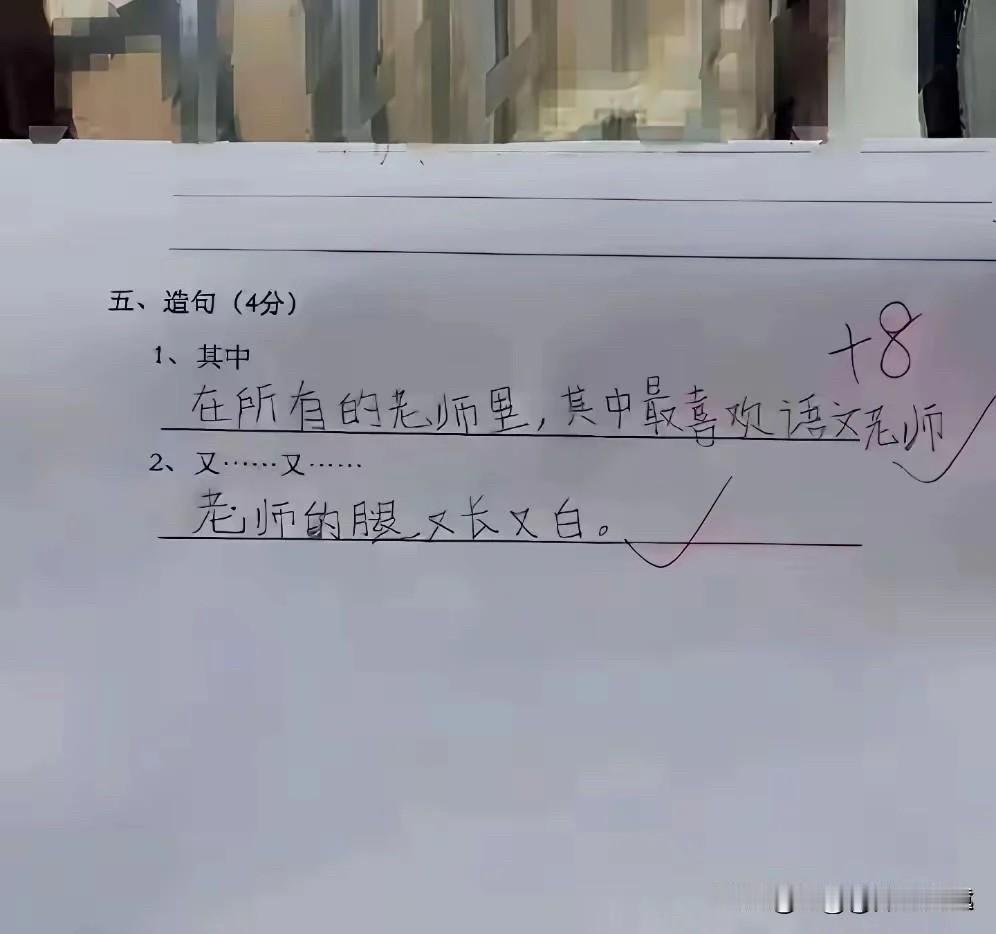 五、造句（4分）
1、其中
+8
在所有的老师里，其中最喜欢语文老师
2、又……又……
老师的腿又长又白。